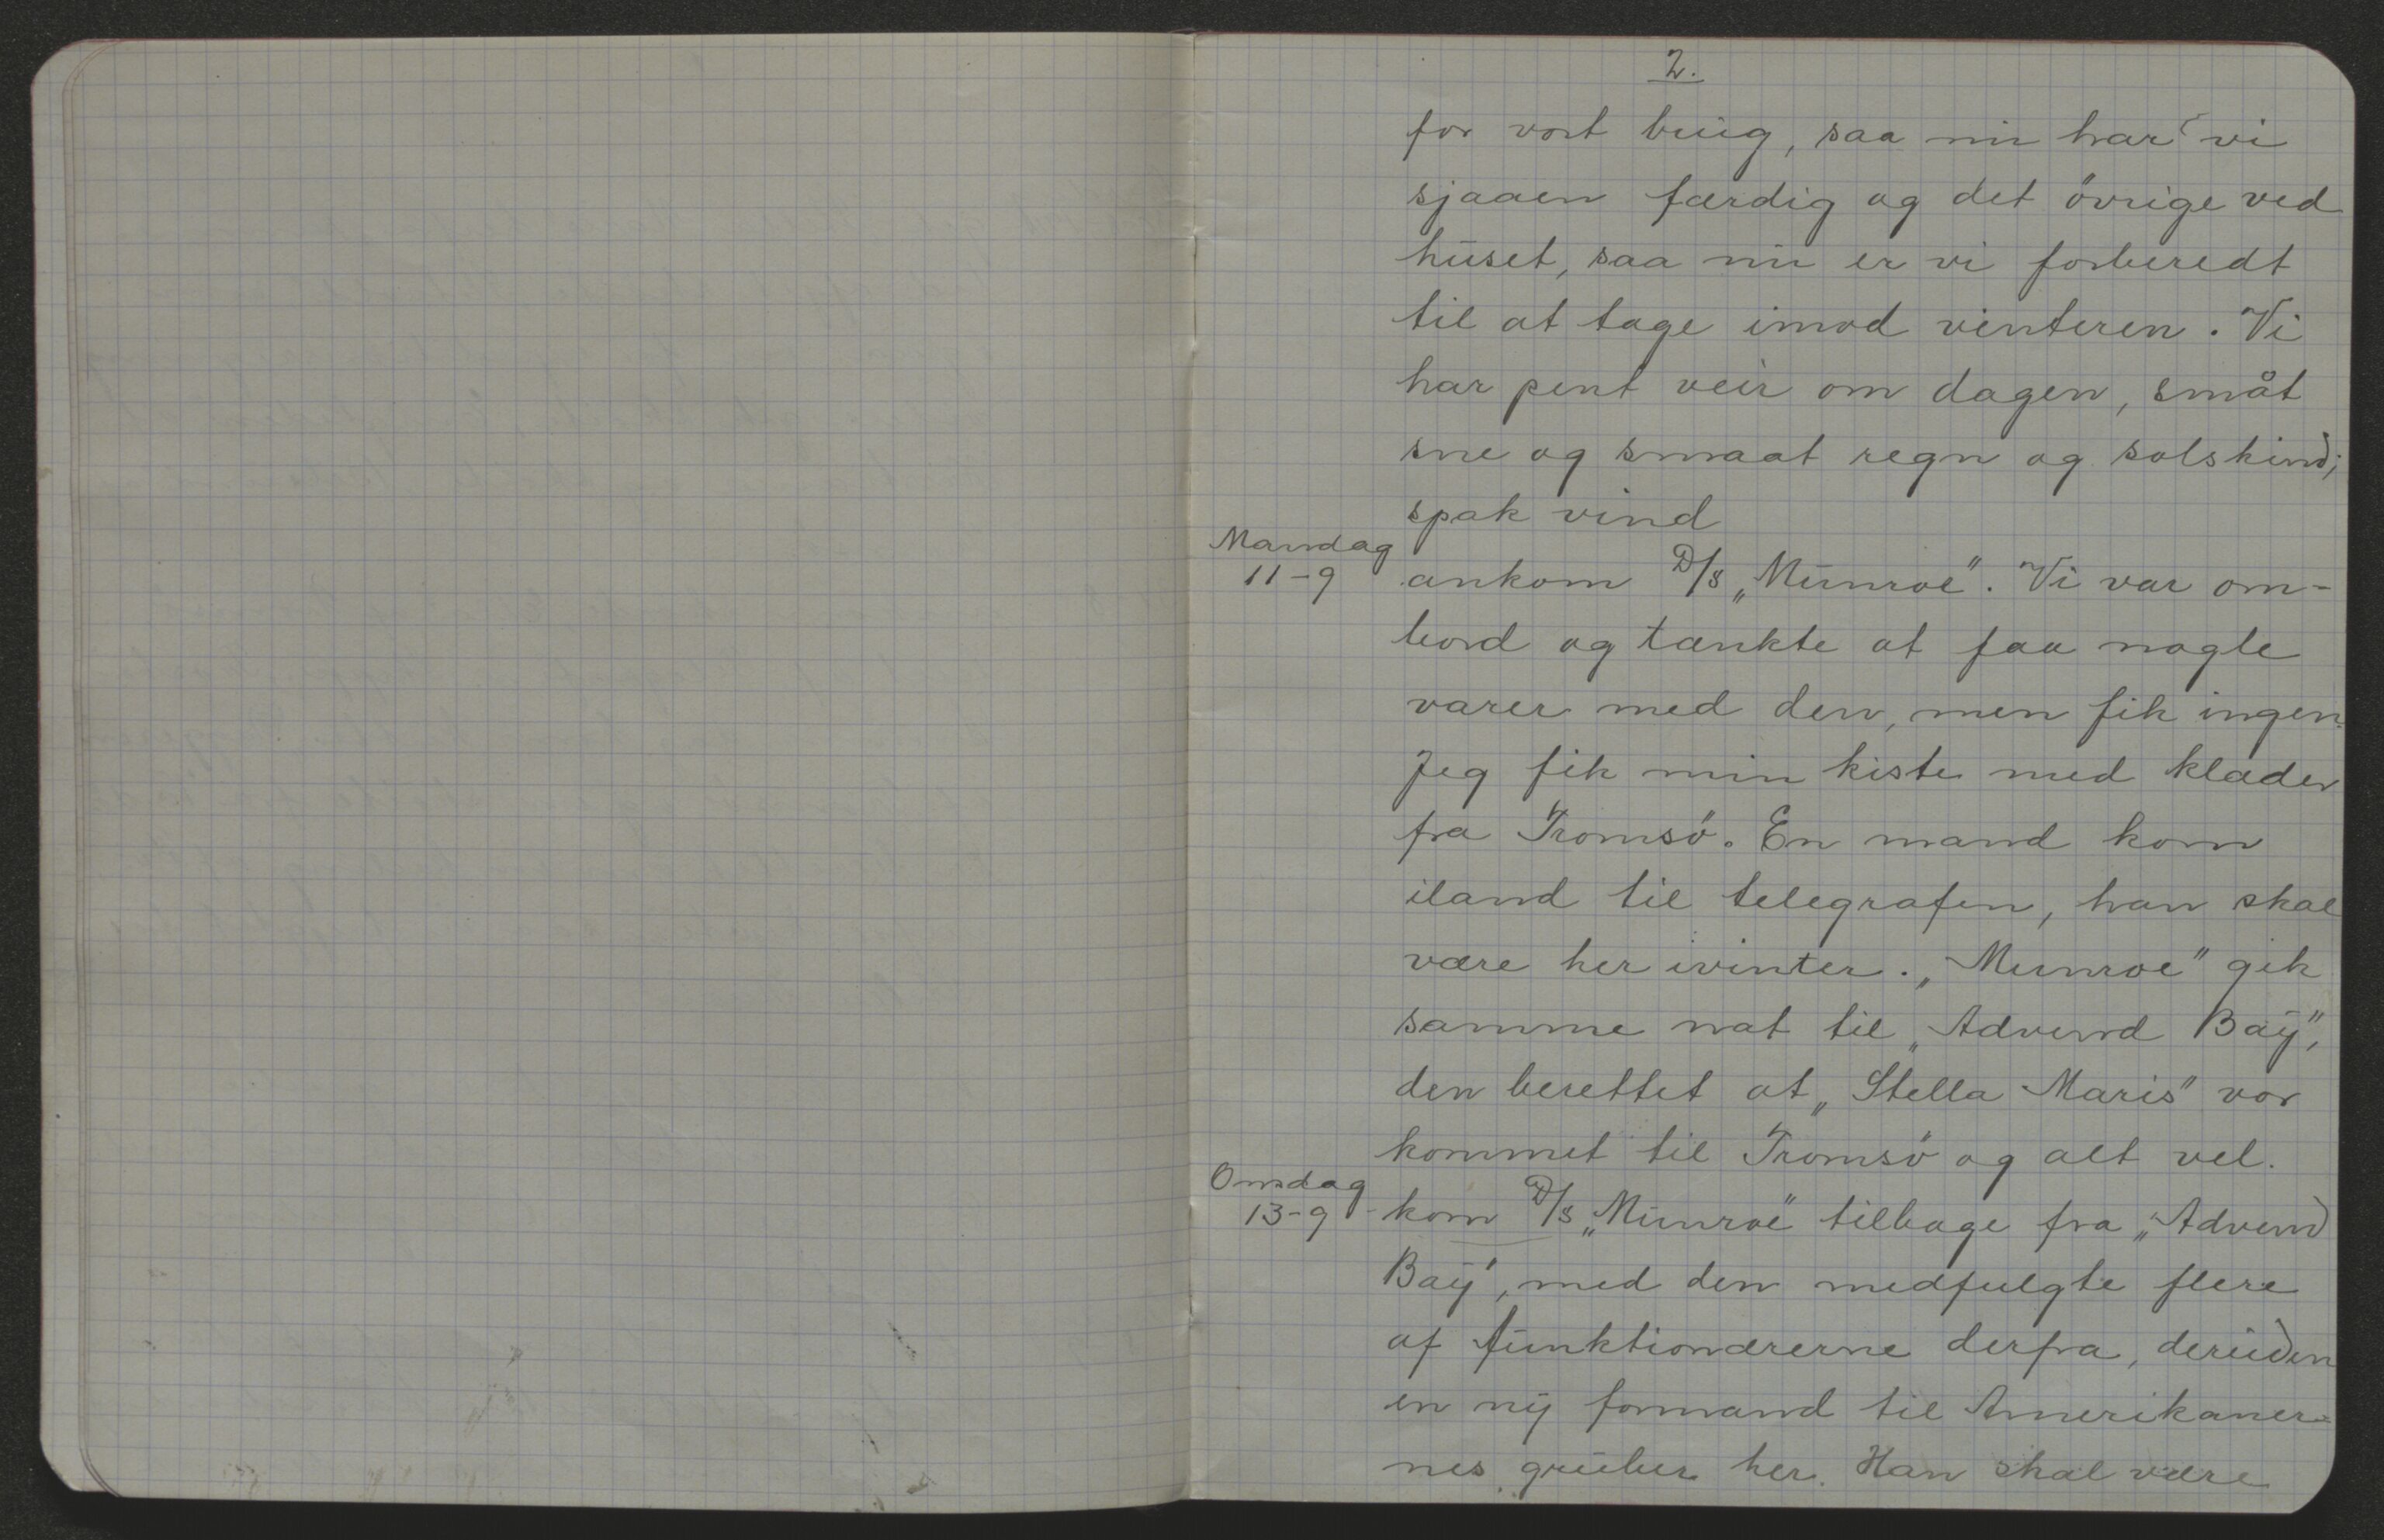 2.
for vort brug, saa nu har vi
sjaaen færdig og det övrige ved
huset, saa nu er vi forberedt
til at tage imod vinteren. Vi
har pent veir om dagen, småt
sne og smaat regn og solskind;
spak vind
Mandag
11-9 ankom D/S „Munroe". Vi var om-
bord og tænkte at faa nogle
varer med den, men fik ingen.
Jeg fik min kiste med klæder
fra Tromsö. En mand kom
iland til telegrafen, han skal
være her ivinter. „Munroe" gik
samme nat til „Advend Bay",
den berettet at „Stella Maris" var
kommet til Tromsö og alt vel.
Onsdag
13-9 kom D/S „Munroe" tilbage fra „Advend
Bay", med den medfulgte flere
af funktionærerne derfra, deriiden
en ny formand til Amerikaner-
nes gruber her. Han skal være